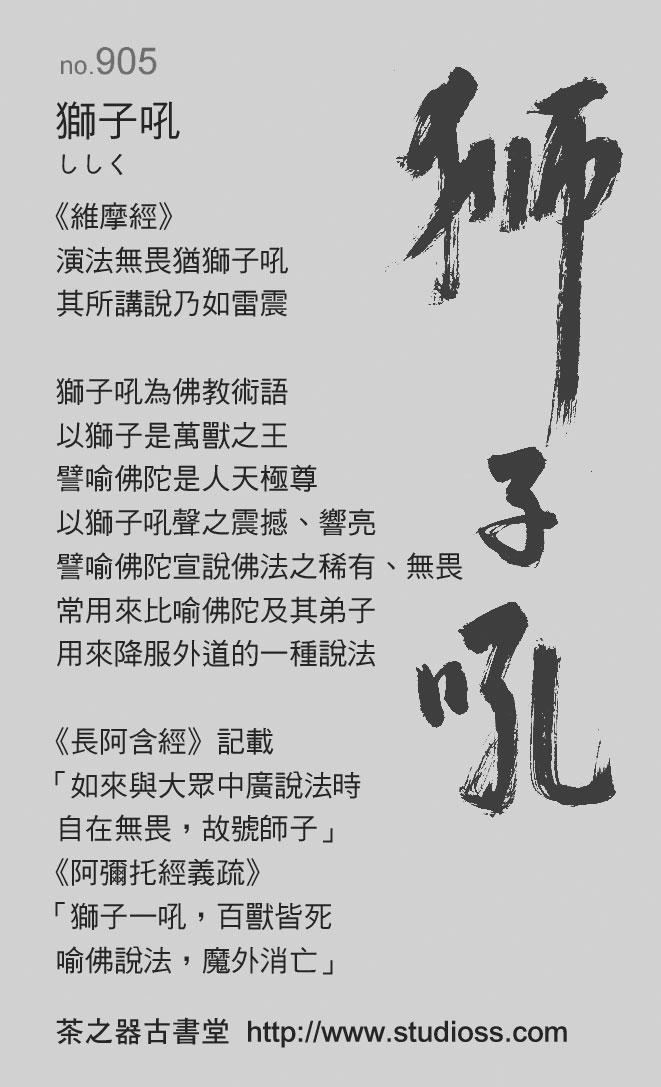 no.905
獅子吼
ししく
《維摩經》
演法無畏猶獅子吼
其所講說乃如雷震
獅子吼為佛教術語
以獅子是萬獸之王
譬喻佛陀是人天極尊
以獅子吼聲之震撼、響亮
譬喻佛陀宣說佛法之稀有、無畏
常用來比喻佛陀及其弟子
用來降服外道的一種說法
《長阿含經》記載
「如來與大眾中廣說法時
自在無畏，故號師子」
《阿彌托經義疏》
「獅子一吼，百獸皆死
喻佛說法，魔外消亡」
茶之器古書堂 http://www.studioss.com
獅子吼